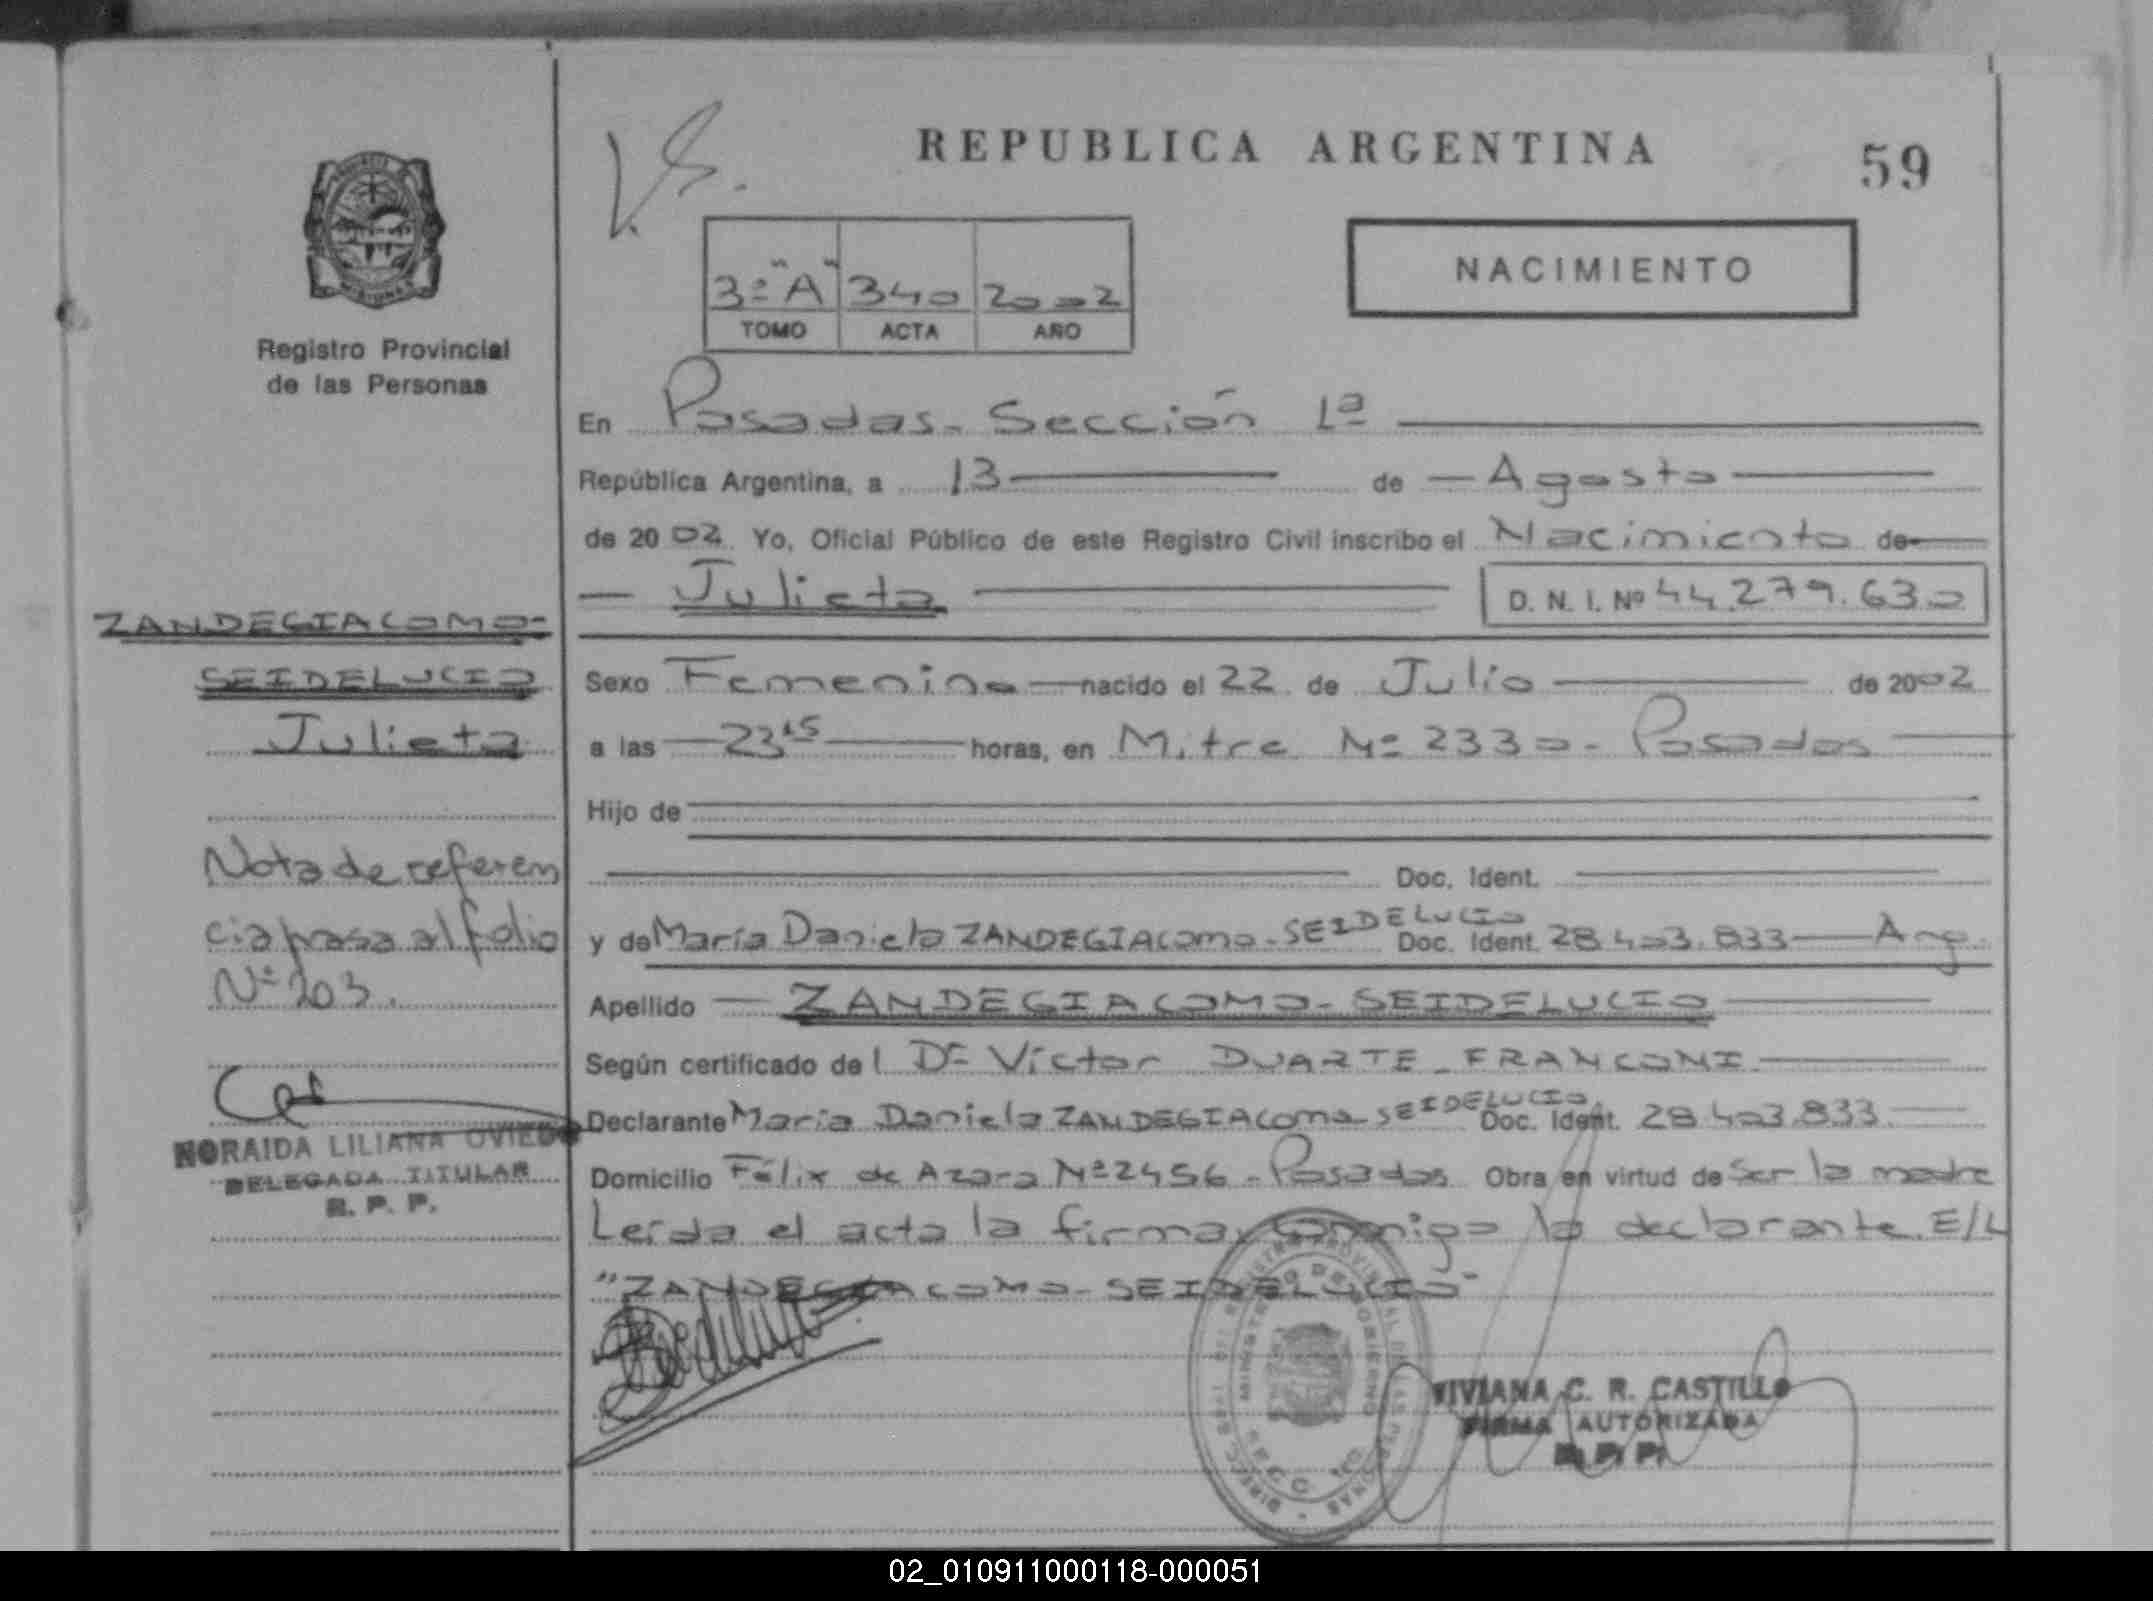 REPUBLICA ARGENTINA
59
V.S.
3º "A" 340 2002
TOMO ACTA AÑO
NACIMIENTO
PROVINCIA DE
MISIONES
Registro Provincial
de las Personas
En Posadas - Sección 1ª
República Argentina, a 13 de Agosto
de 2002 Yo, Oficial Público de este Registro Civil inscribo el Nacimiento de
Julieta D. N. I. Nº 44.279.630
ZANDEGIACOMO-
SEIDELUCIO
Julieta
Sexo Femenino nacido el 22 de Julio de 2002
a las 23 15 horas, en Mitre Nº 2330 - Posadas
Hijo de
Doc. Ident.
y de María Daniela ZANDEGIACOMO - SEIDELUCIO Doc. Ident. 28.403.833 Arg.
Apellido ZANDEGIACOMO - SEIDELUCIO
Según certificado del Dr Víctor DUARTE - FRANCONI
Declarante María Daniela ZANDEGIACOMO SEIDELUCIO Doc. Ident. 28.403.833
Domicilio Félix de Azara Nº 2456 - Posadas Obra en virtud de ser la madre
Leída el acta la firma conmigo la declarante. E/L
"ZANDEGIACOMO - SEIDELUCIO"
Nota de referen
cia pasa al folio
Nº 203.
NORAIDA LILIANA OVIEDO
DELEGADA TITULAR
R. P. P.
VIVIANA C. R. CASTILLO
FIRMA AUTORIZADA
R. P. P.
MINISTERIO DE GOBIERNO
02_010911000118-000051